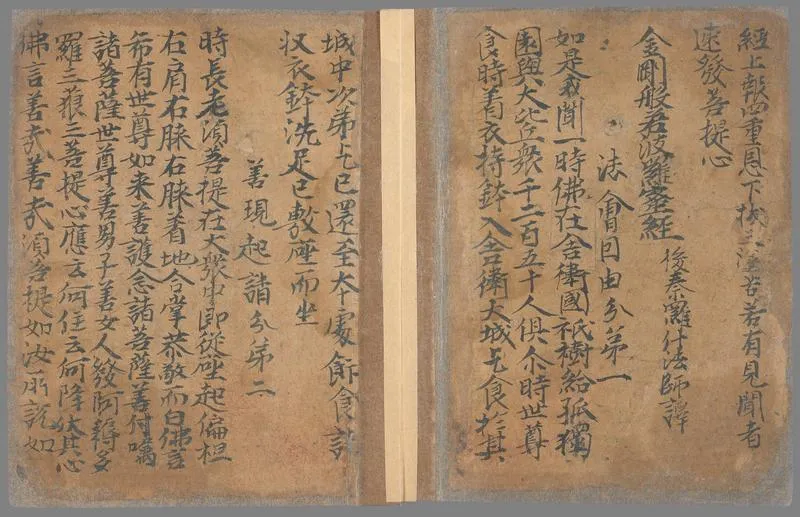 經上報四重恩下捄三塗苦若有見聞者
速發菩提心
金剛般若波羅蜜經
後秦羅什法師譯
法會因由分第一
如是我聞一時佛在舍衛國祇樹給孤獨
園與大比丘衆千二百五十人俱尒時世尊
食時着衣持鉢入舍衛大城乞食於其
城中次苐乞已還至本處飰食訖
収衣鉢洗足已敷座而坐
善現起請分苐二
時長老湏菩提在大衆中即從座起偏袒
右肩右膝右膝着地合掌恭敬而白佛言
希有世尊如来善護念諸菩薩善付囑
諸菩薩世尊善男子善女人發阿耨多
羅三藐三菩提心應云何住云何降伏其心
佛言善㢤善㢤湏菩提如汝所說如